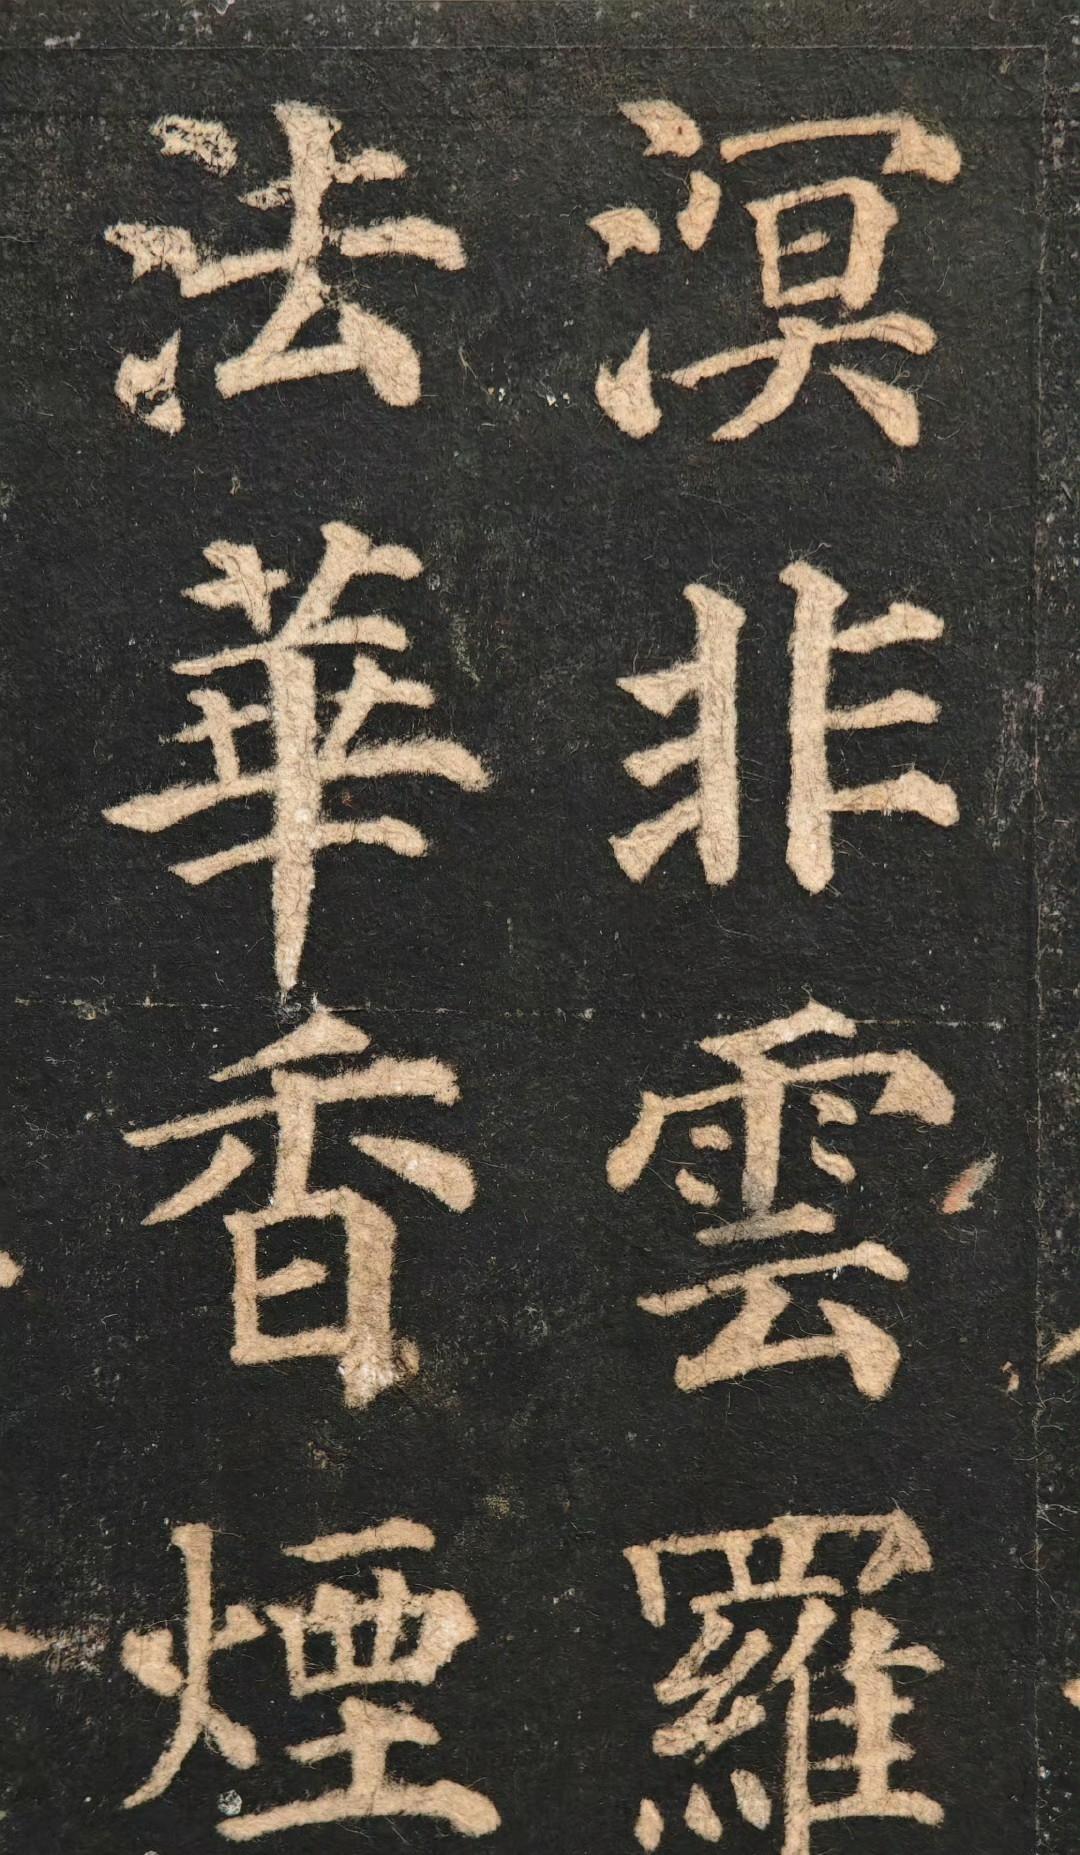 溟非雲羅
法華香煙